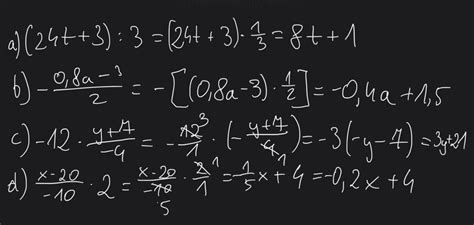 a) (24t+3) : 3 = (24t+3) · 1/3 = 8t + 1
b) - (0,8a-3)/2 = - [(0,8a-3) · 1/2] = -0,4a + 1,5
c) -12 · (y+7)/(-4) = - 12̶ ³/1 · (- (y+7)/4̶ ₁) = -3(-y-7) = 3y+21
d) (x-20)/(-10) · 2 = (x-20)/(-1̶0̶ ₅) · 2̶ ¹/1 = -1/5 x + 4 = -0,2x + 4